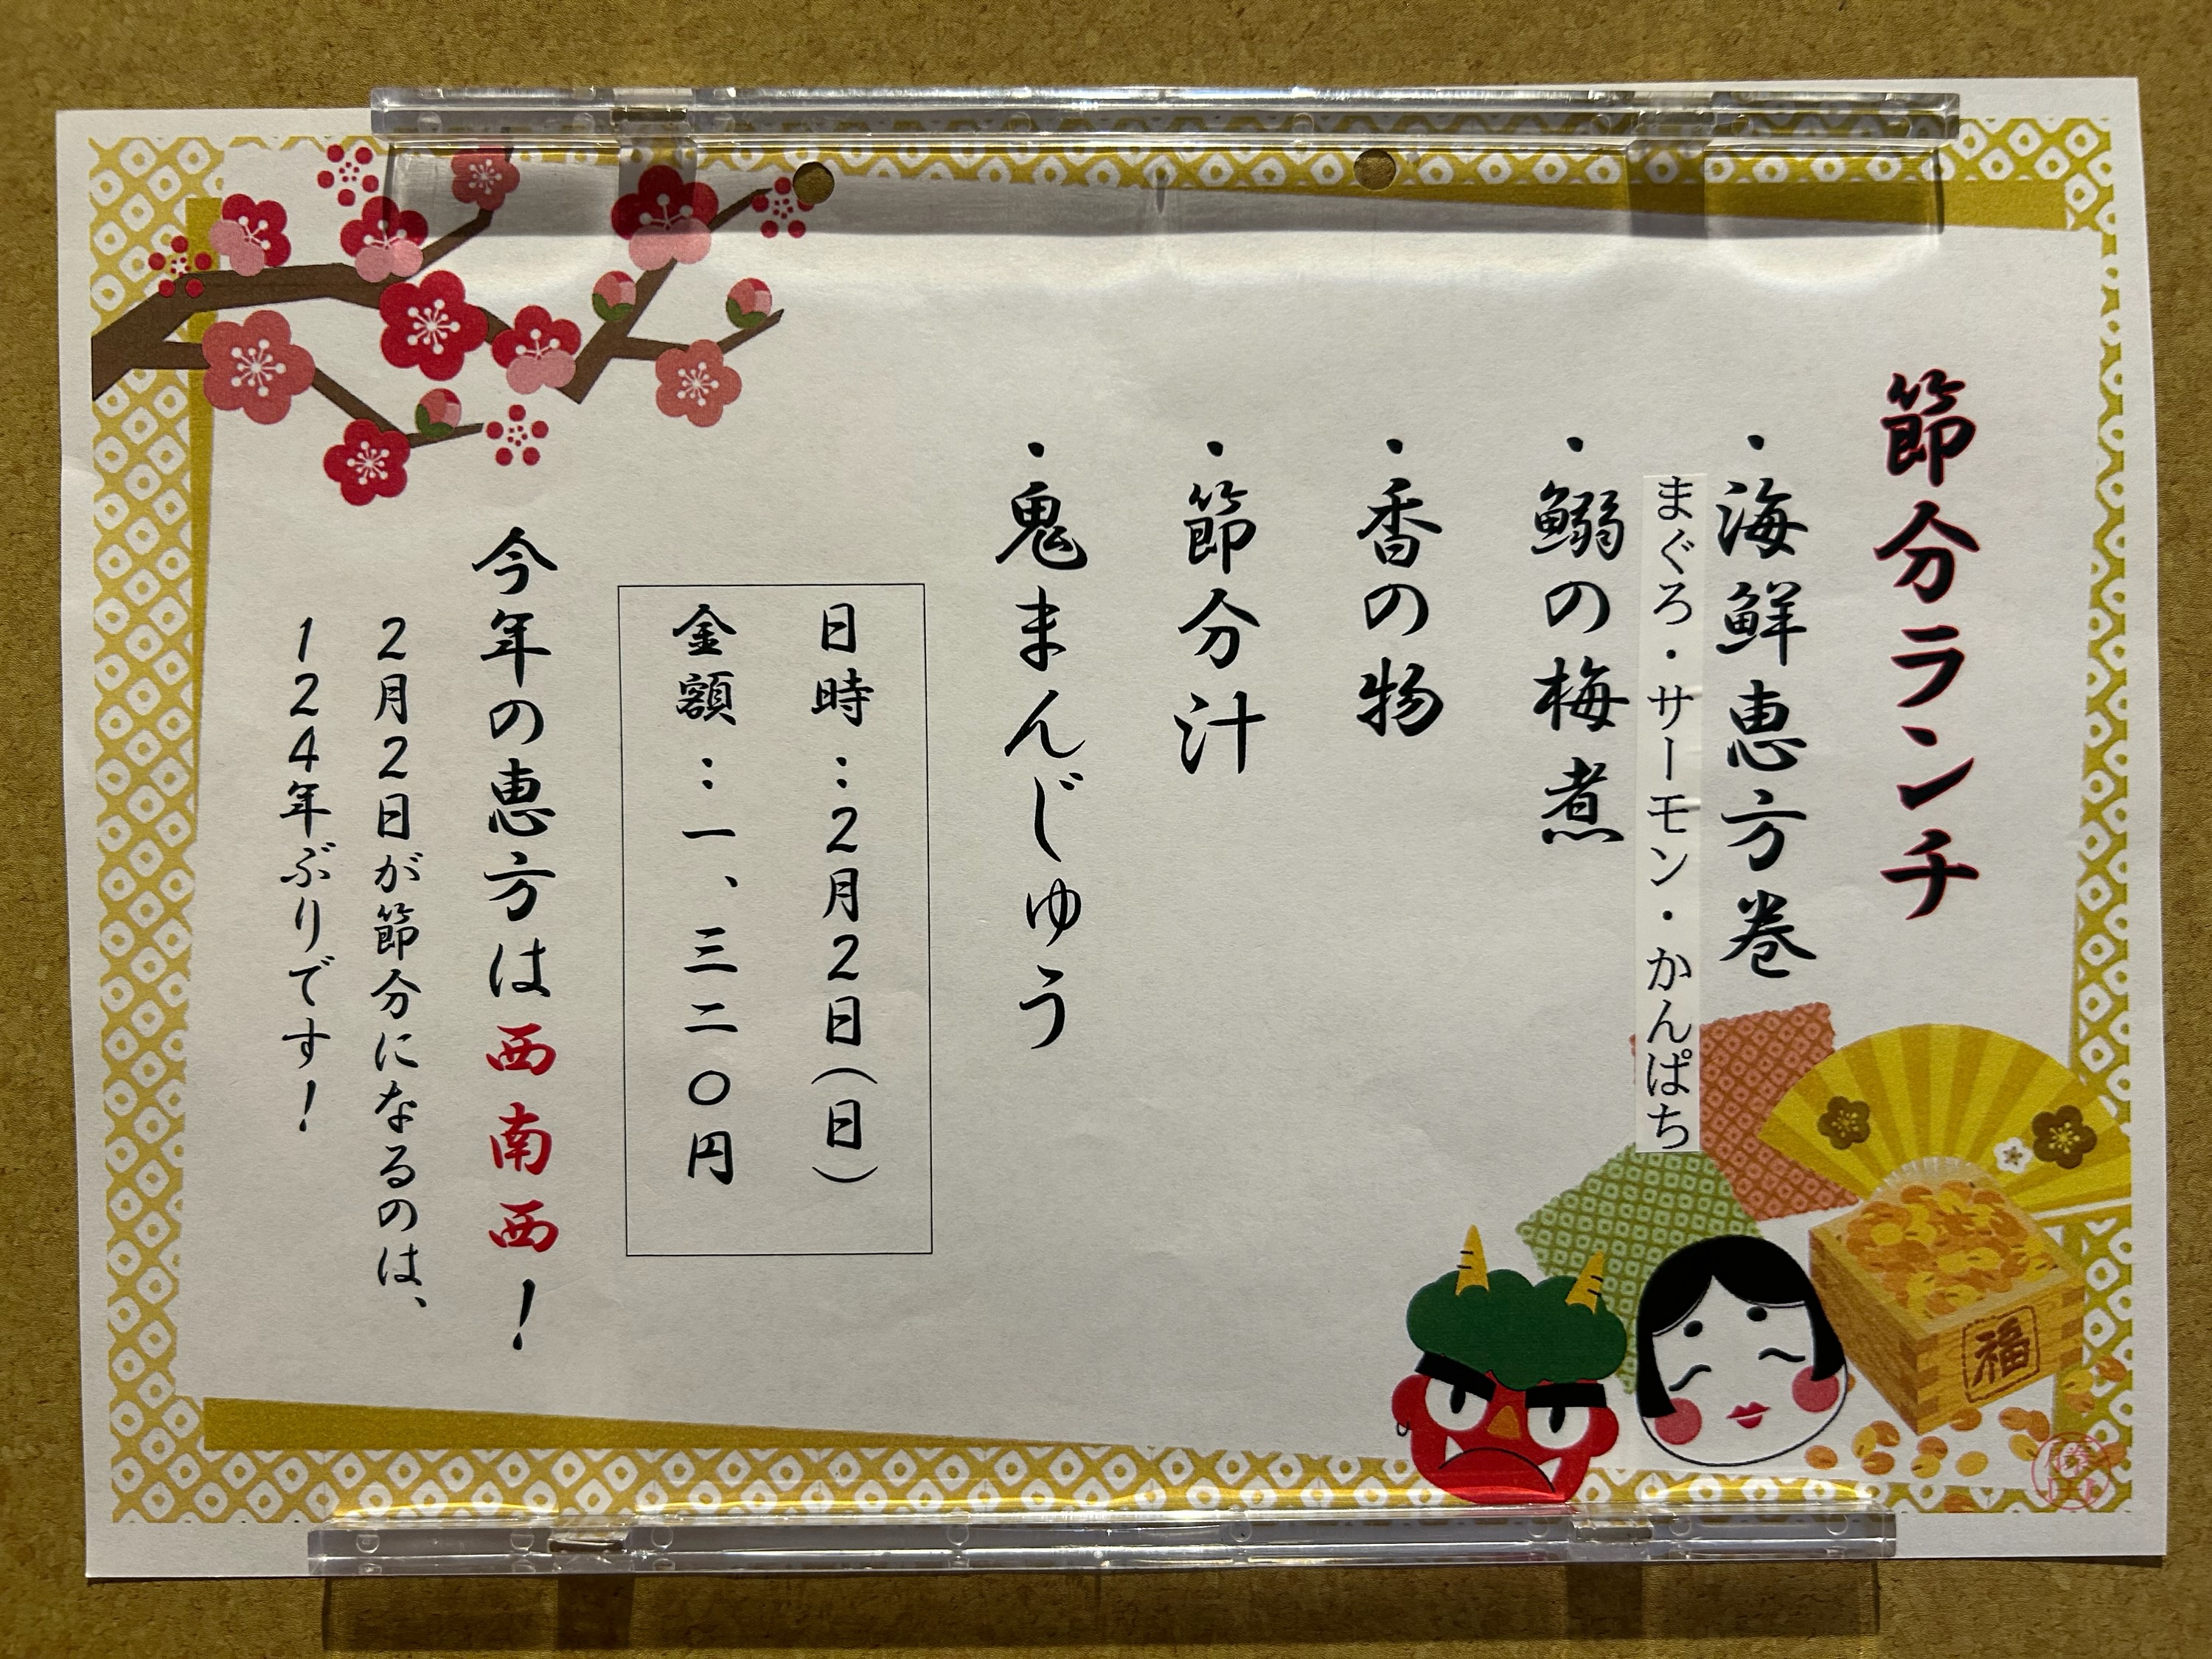 節分ランチ
・海鮮恵方巻
まぐろ・サーモン・かんぱち
・鰯の梅煮
・香の物
・節分汁
・鬼まんじゅう
日時：2月2日（日）
金額：一、三二〇円
今年の恵方は西南西！
2月2日が節分になるのは、
124年ぶりです！
福